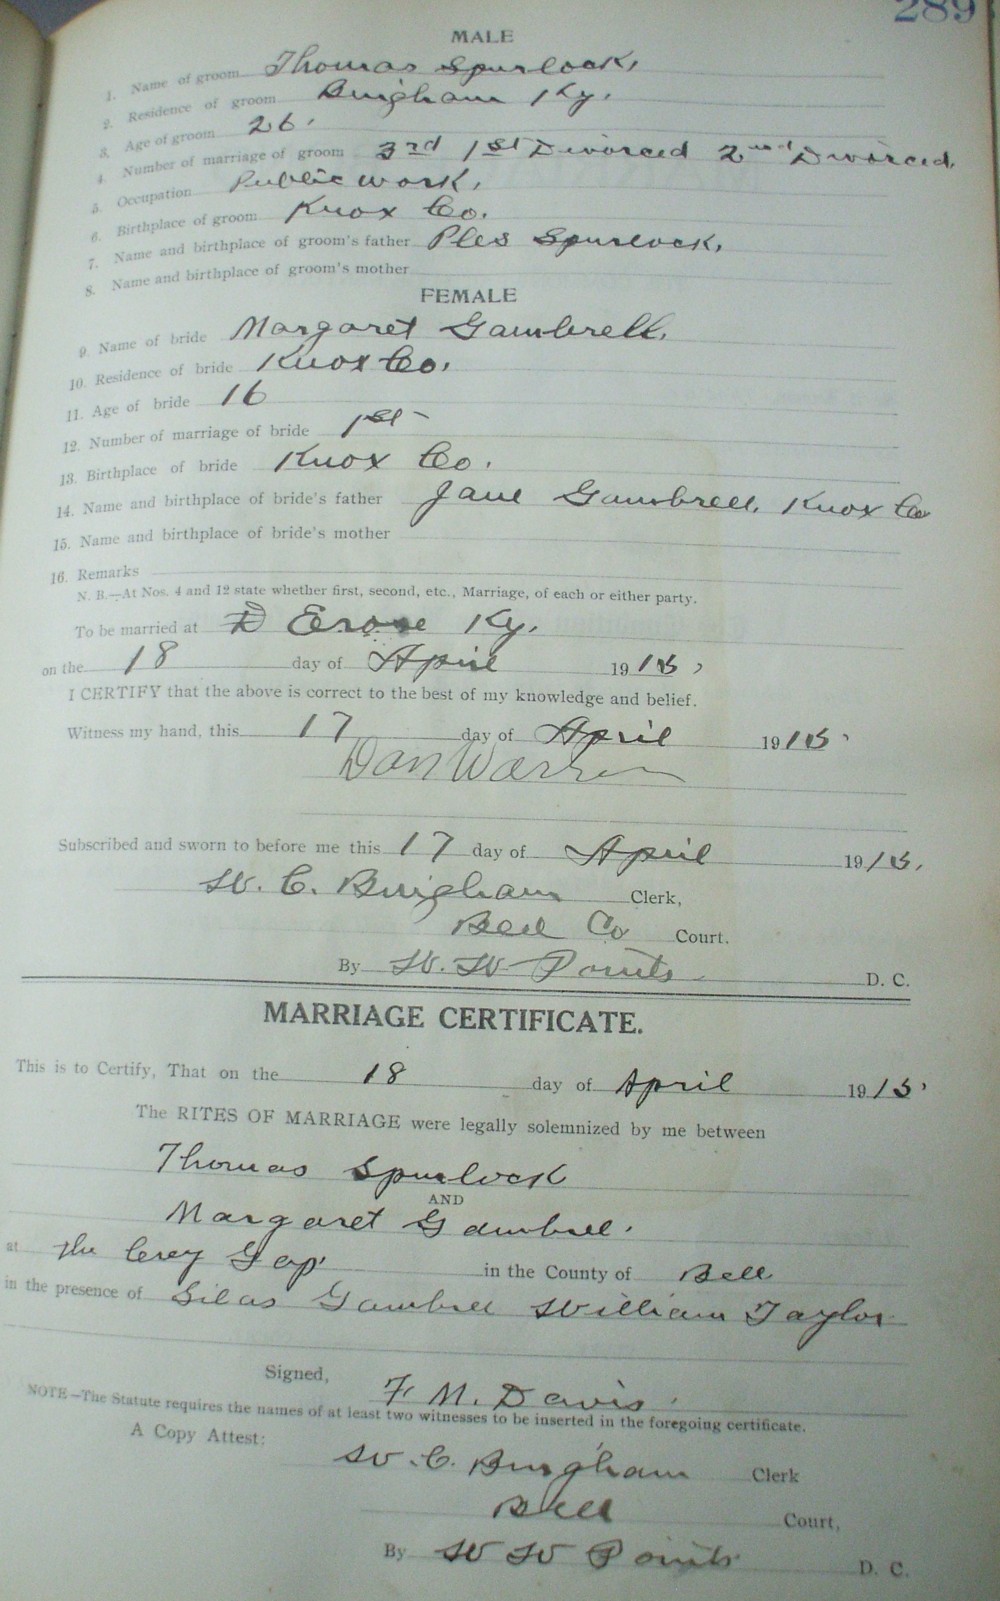 289
MALE
1. Name of groom Thomas Spurlock,
2. Residence of groom Bingham Ky.
3. Age of groom 26.
4. Number of marriage of groom 3rd 1st Divorced 2nd Divorced,
5. Occupation Public work,
6. Birthplace of groom Knox Co.
7. Name and birthplace of groom's father Ples Spurlock,
8. Name and birthplace of groom's mother
FEMALE
9. Name of bride Margaret Gambrell,
10. Residence of bride Knox Co.
11. Age of bride 16
12. Number of marriage of bride 1st
13. Birthplace of bride Knox Co.
14. Name and birthplace of bride's father Jane Gambrell, Knox Co
15. Name and birthplace of bride's mother
16. Remarks
N. B.—At Nos. 4 and 12 state whether first, second, etc., Marriage, of each or either party.
To be married at Erose Ky.
on the 18 day of April 1915,
I CERTIFY that the above is correct to the best of my knowledge and belief.
Witness my hand, this 17 day of April 1915.
Dan Warren
Subscribed and sworn to before me this 17 day of April 1915,
W. C. Bingham Clerk,
Bell Co Court.
By W. W. Points D. C.
MARRIAGE CERTIFICATE.
This is to Certify, That on the 18 day of April 1915,
The RITES OF MARRIAGE were legally solemnized by me between
Thomas Spurlock
AND
Margaret Gambrel.
at the Gap in the County of Bell
in the presence of Silas Gambrell William Taylor
Signed,
F. M. Davis.
NOTE—The Statute requires the names of at least two witnesses to be inserted in the foregoing certificate.
A Copy Attest:
W. C. Bingham Clerk
Bell Court,
By W W Points D. C.